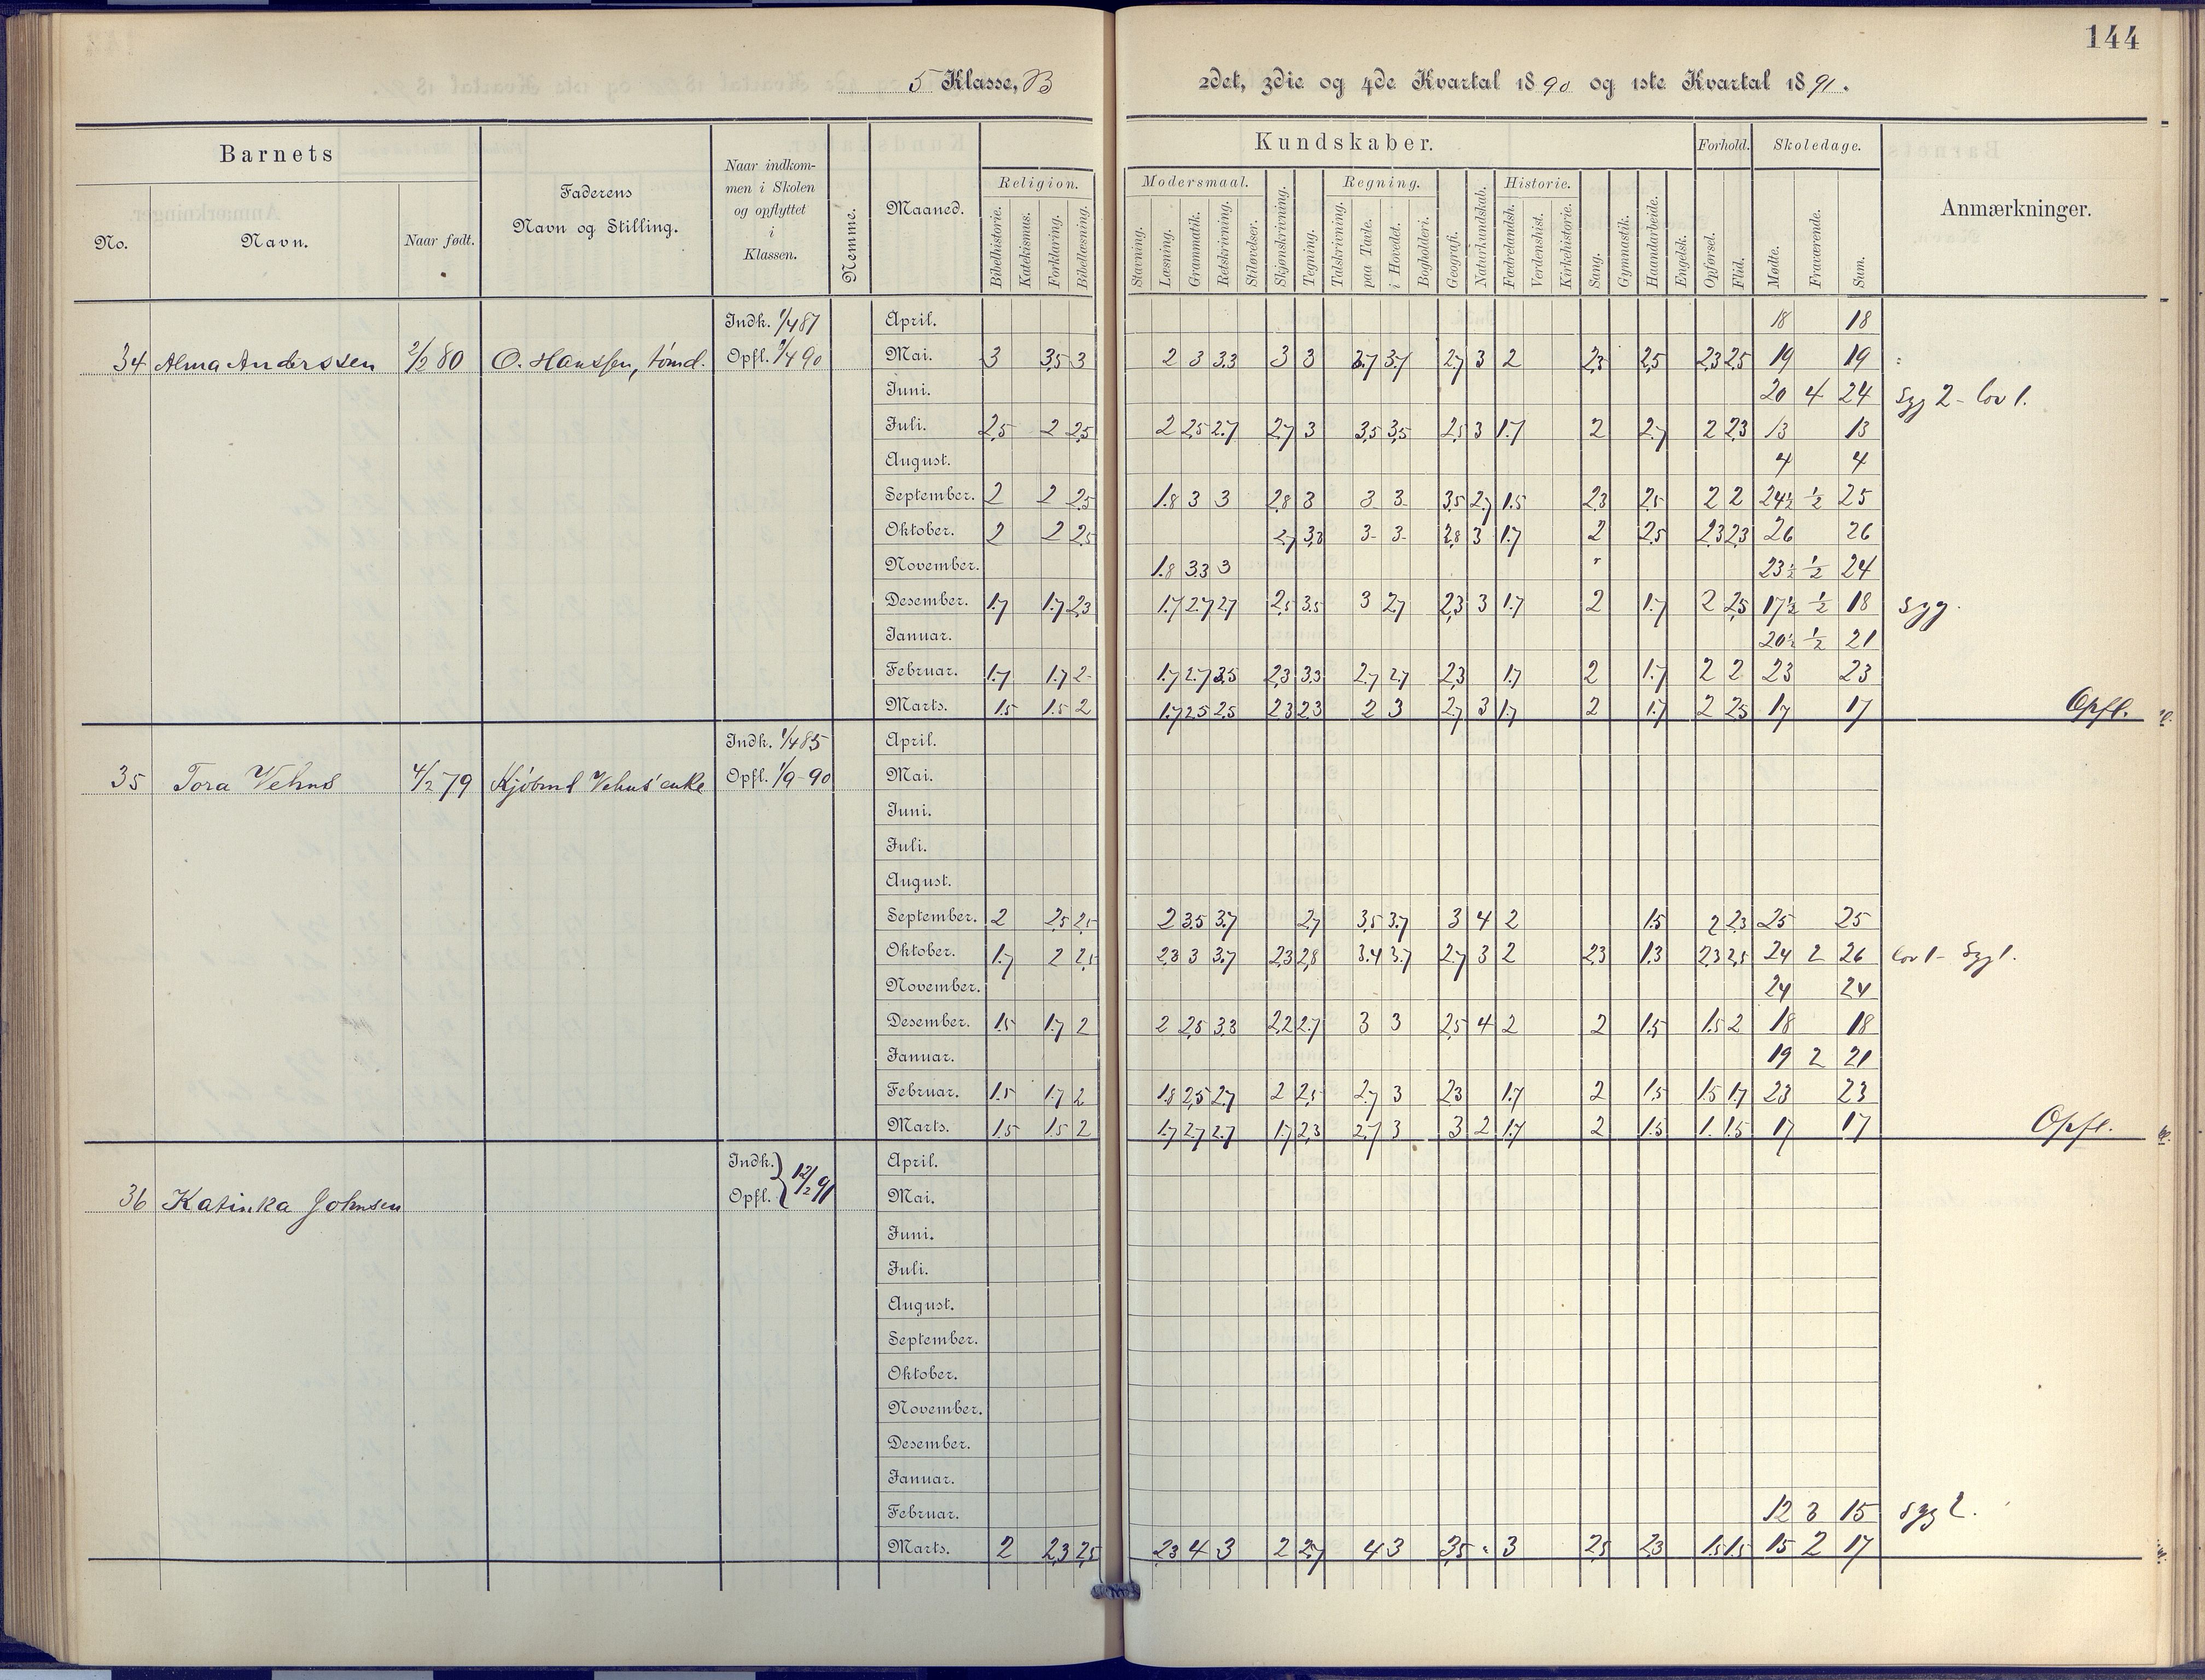 144
5 Klasse, B 2det, 3die og 4de Kvartal 1890 og 1ste Kvartal 1891.
Barnets
No.
Navn.
Naar født.
Faderens
Navn og Stilling.
Naar indkom-
men i Skolen
og opflyttet
i
Klassen.
Nemme.
Maaned.
Kundskaber.
Religion.
Bibelhistorie.
Katekismus.
Forklaring.
Bibellæsning.
Modersmaal.
Stavning.
Læsning.
Grammatik.
Retskrivning.
Stiløvelser.
Skjønskrivning.
Tegning.
Regning.
Talskrivning.
paa Tavle.
i Hovedet.
Bogholderi.
Geografi.
Naturkundskab.
Historie.
Fædrelandsh.
Verdenshist.
Kirkehistorie.
Sang.
Gymnastik.
Haandarbeide.
Engelsk.
Forhold.
Opførsel.
Flid.
Skoledage.
Mødte.
Fraværende.
Sum.
Anmærkninger.
Indk. 1/4 87 April. 18 18
34 Alma Anderssen 2/2 80 O. Hanssen, tømd. Opfl. 1/4 90 Mai. 3 3,5 3 2 3 3.3 3 3 3.7 3.7 2.7 3 2 2.3 2.5 2.3 2.5 19 19
Juni. 20 4 24 Syg 2 - lov 1.
Juli. 2.5 2 2.5 2 2.5 2.7 2.7 3 3.5 3.5 2.5 3 1.7 2 2.7 2 2.3 13 13
August. 4 4
September. 2 2 2.5 1.8 3 3 2.8 3 3 3 3.5 2.7 1.5 2.3 2.5 2 2 24½ ½ 25
Oktober. 2 2 2.5 2.7 3.3 3 3 2.8 3 1.7 2 2.5 2.3 2.3 26 26
November. 1.8 3.3 3 23½ ½ 24
Desember. 1.7 1.7 2.3 1.7 2.7 2.7 2.5 3.5 3 2.7 2.3 3 1.7 2 1.7 2 2.5 17½ ½ 18 Syg.
Januar. 20½ ½ 21
Februar. 1.7 1.7 2 1.7 2.7 3.5 2.3 3.3 2.7 2.7 2.3 1.7 2 1.7 2 2 23 23
Marts. 1.5 1.5 2 1.7 2.5 2.5 2.3 2.3 2 3 2.7 3 1.7 2 1.7 2 2.5 17 17 Opfl.
Indk. 1/4 85 April.
35 Tora Vehus 4/2 79 Kjøbmd Vehus' enke Opfl. 1/9-90 Mai.
Juni.
Juli.
August.
September. 2 2.5 2.5 2 3.5 3.7 2.7 3.5 3.7 3 4 2 1.5 2 2.3 25 25
Oktober. 1.7 2 2.5 2.3 3 3.7 2.3 2.8 3.4 3.7 2.7 3 2 2.3 1.3 2.3 2.5 24 2 26 lov 1 - Syg 1.
November. 24 24
Desember. 1.5 1.7 2 2 2.5 3.3 2.2 2.7 3 3 2.5 4 2 2 1.5 1.5 2 18 18
Januar. 19 2 21
Februar. 1.5 1.7 2 1.8 2.5 2.7 2 2.5 2.7 3 2.3 1.7 2 1.5 1.5 1.7 23 23
Marts. 1.5 1.5 2 1.7 2.7 2.7 1.7 2.3 2.7 3 3 2 1.7 2 1.5 1. 1.5 17 17 Opfl.
Indk. April.
36 Katinka Johnsen Opfl. } 12/2 91 Mai.
Juni.
Juli.
August.
September.
Oktober.
November.
Desember.
Januar.
Februar. 12 3 15 Syg 2.
Marts. 2 2.3 2.5 2.3 4 3 2 2.7 4 3 3.5 3 2.5 2.3 1.5 1.5 15 2 17